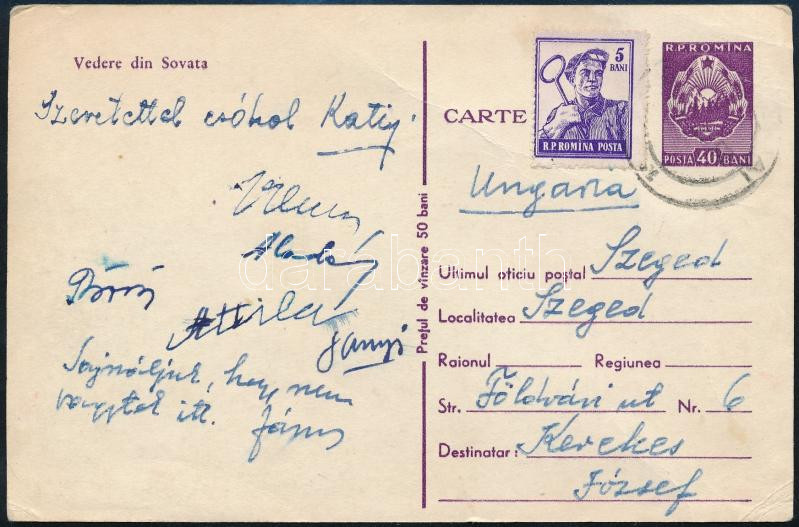 Vedere din Sovata
Szeretettel csókol Katiy
Aladár
Attila
Sajnáljuk, hogy nem
vagytok itt. János
Prețul de vînzare 50 bani
CARTE
5
BANI
R.P.ROMINA POSTA
R.P.ROMINA
POSTA 40 BANI
Ungaria
Ultimul oficiu poștal Szeged
Localitatea Szeged
Raionul Regiunea
Str. Földvári ut Nr. 6
Destinatar: Kerekes
József
darabanth